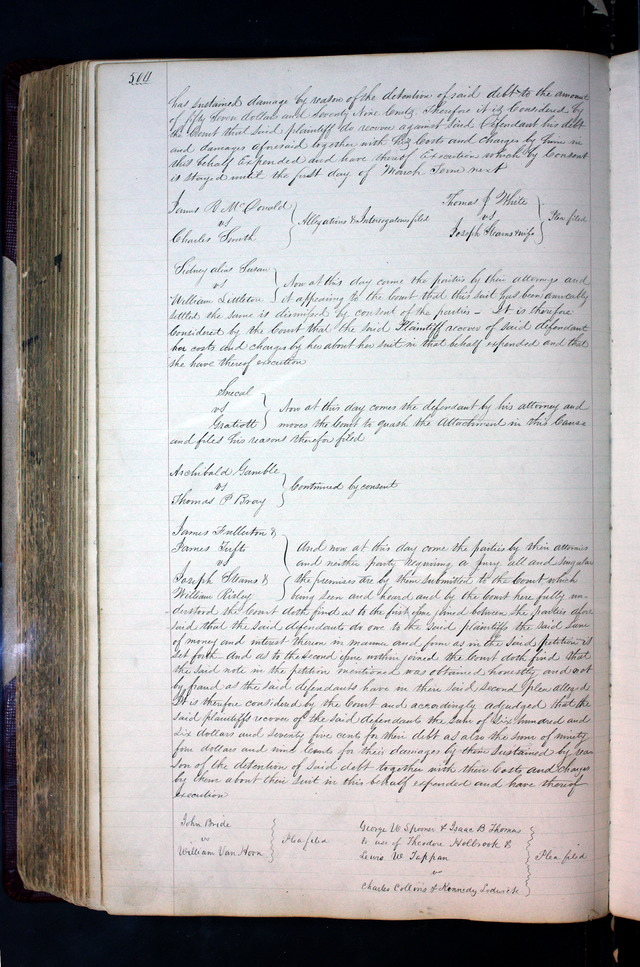 504
has sustained damage by reason of the detention of said debt to the amount
of fifty seven dollars and seventy nine Cents. Therefore it is Considered by
the Court that said plaintiff do recover against said Defendant his debt
and damages aforesaid together with his Costs and Charges by him in
this behalf Expended and have thereof Execution which by Consent
is stayed until the first day of March Term next
James R McDonald
vs
Charles Smith
Allegations & Interrogatories filed
Thomas J White
vs
Joseph Stearns & wife
Plea filed
Sidney alias Susan
vs
William Littleton
Now at this day come the parties by their attorneys and
it appearing to the Court that this suit has been amicably
settled the same is dismissed by consent of the parties – It is therefore
Considered by the Court that the said Plaintiff recover of said defendant
her costs and charges by her about her suit in that behalf expended and that
she have thereof execution
vs
Gratiott
Now at this day comes the defendant by his attorney and
moves the Court to quash the Attachment in this Cause
and files his reasons therefor filed
Archibald Gamble
vs
Thomas P Bray
Continued by consent
James Fullerton &
James Tufts
vs
Joseph Stearns &
William Risley
And now at this day come the parties by their attornies
and neither party requiring a jury all and singular
the premises are by them submitted to the Court which
being seen and heard and by the Court here fully un-
derstood the Court doth find as to the first issue joined between the parties afore
said that the said defendants do owe to the said plaintiffs the said sum
of money and interest thereon in manner and form as in the said petition is
set forth And as to the second issue within joined the Court doth find that
the said note in the petition mentioned was obtained honestly and not
by fraud as the said defendants have in their said second plea alleged
It is therefore considered by the Court and accordingly adjudged that the
said plaintiffs recover of the said defendants the sum of six hundred and
six dollars and seventy five cents for their debt as also the sum of ninety
four dollars and nine Cents for their damages by them sustained by rea
son of the detention of said debt together with their Costs and charges
by them about their suit in this behalf expended and have thereof
execution
John Bride
vs
William Van Horn
Plea filed
George W Spooner & Isaac B Thomas
to use of Theodore Holbrook &
Lewis W Tappan
vs
Charles Collins & Kennedy Lodwick
Plea filed